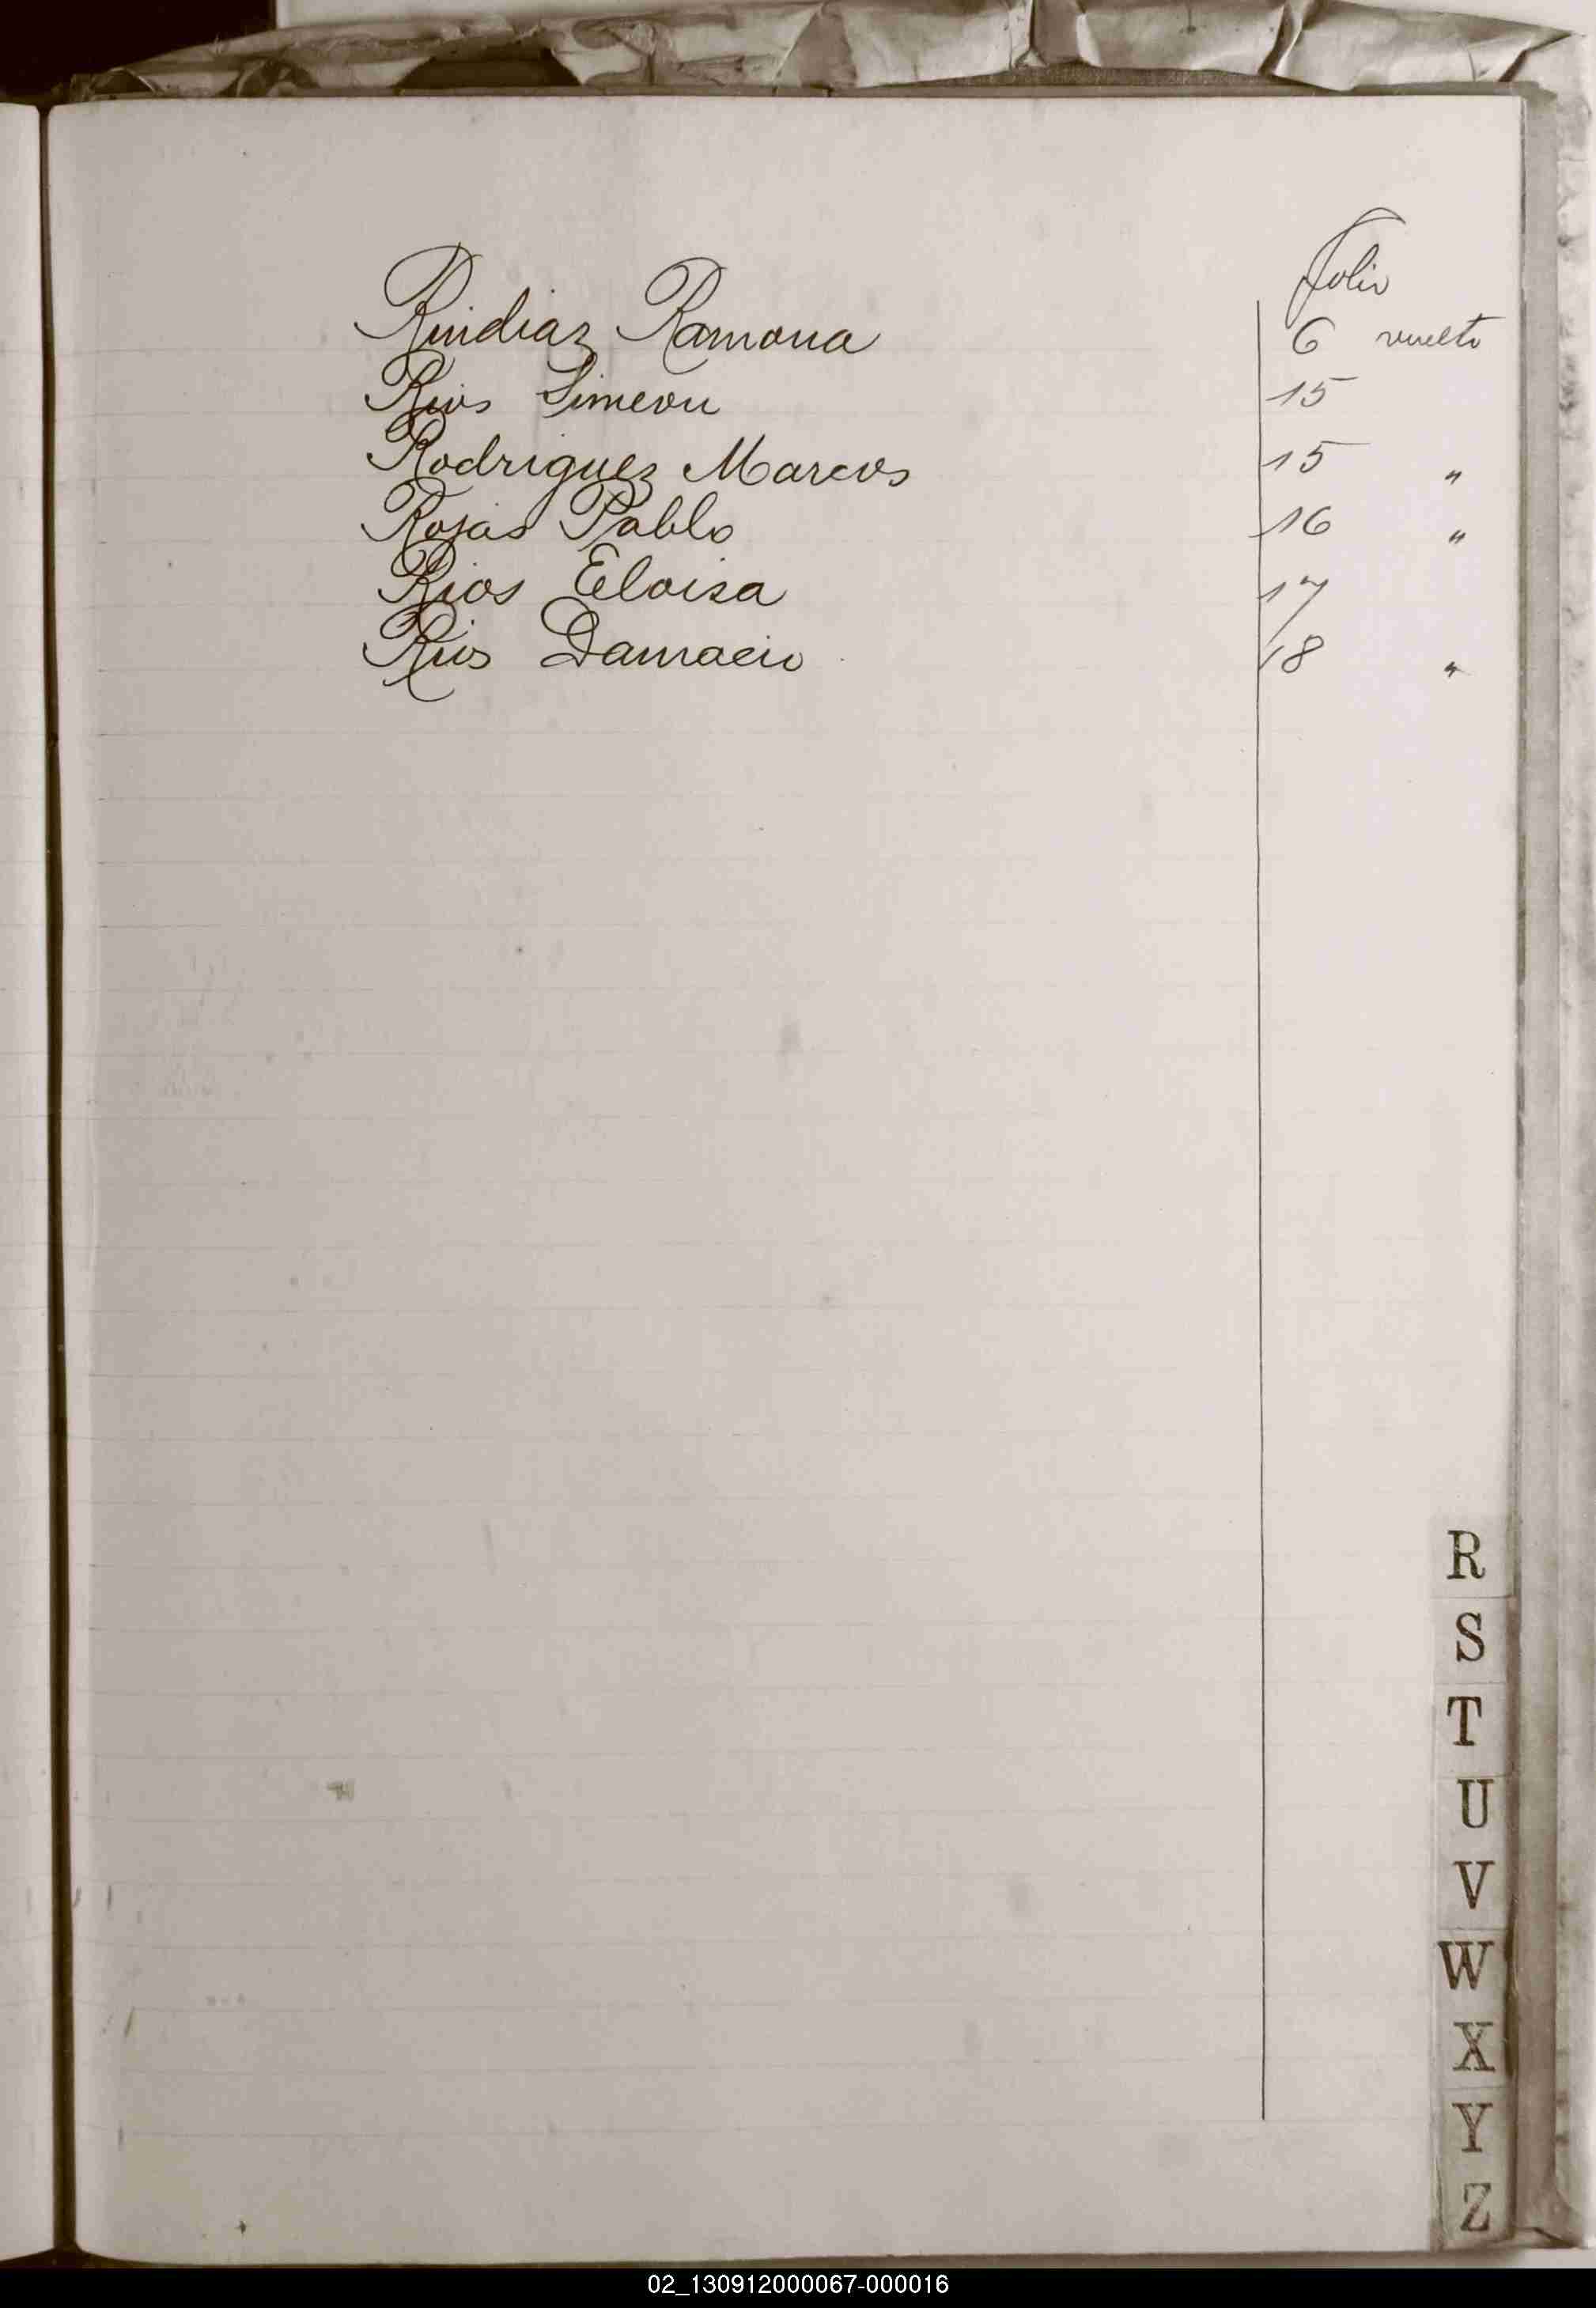 Folio
Ruidiaz Ramona 6 vuelto
Rios Simeon 15
Rodriguez Marcos 15 "
Rojas Pablo 16 "
Rios Eloisa 17
Rios Damacio 18 "
R
S
T
U
V
W
X
Y
Z
02_130912000067-000016